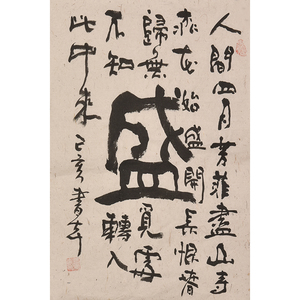 人間四月芳菲盡山寺
桃花始盛開長恨春
歸無覓處
盛
不知轉入
此中來 己亥書